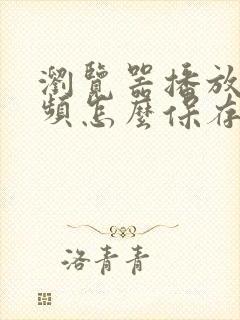 瀏覽器播放
頻怎麼保存
洛青青